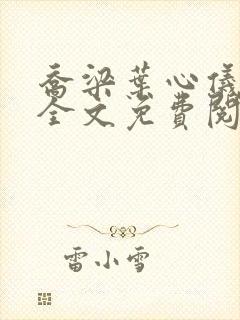 乔梁葉心儀
全文免費閱
雷小雪